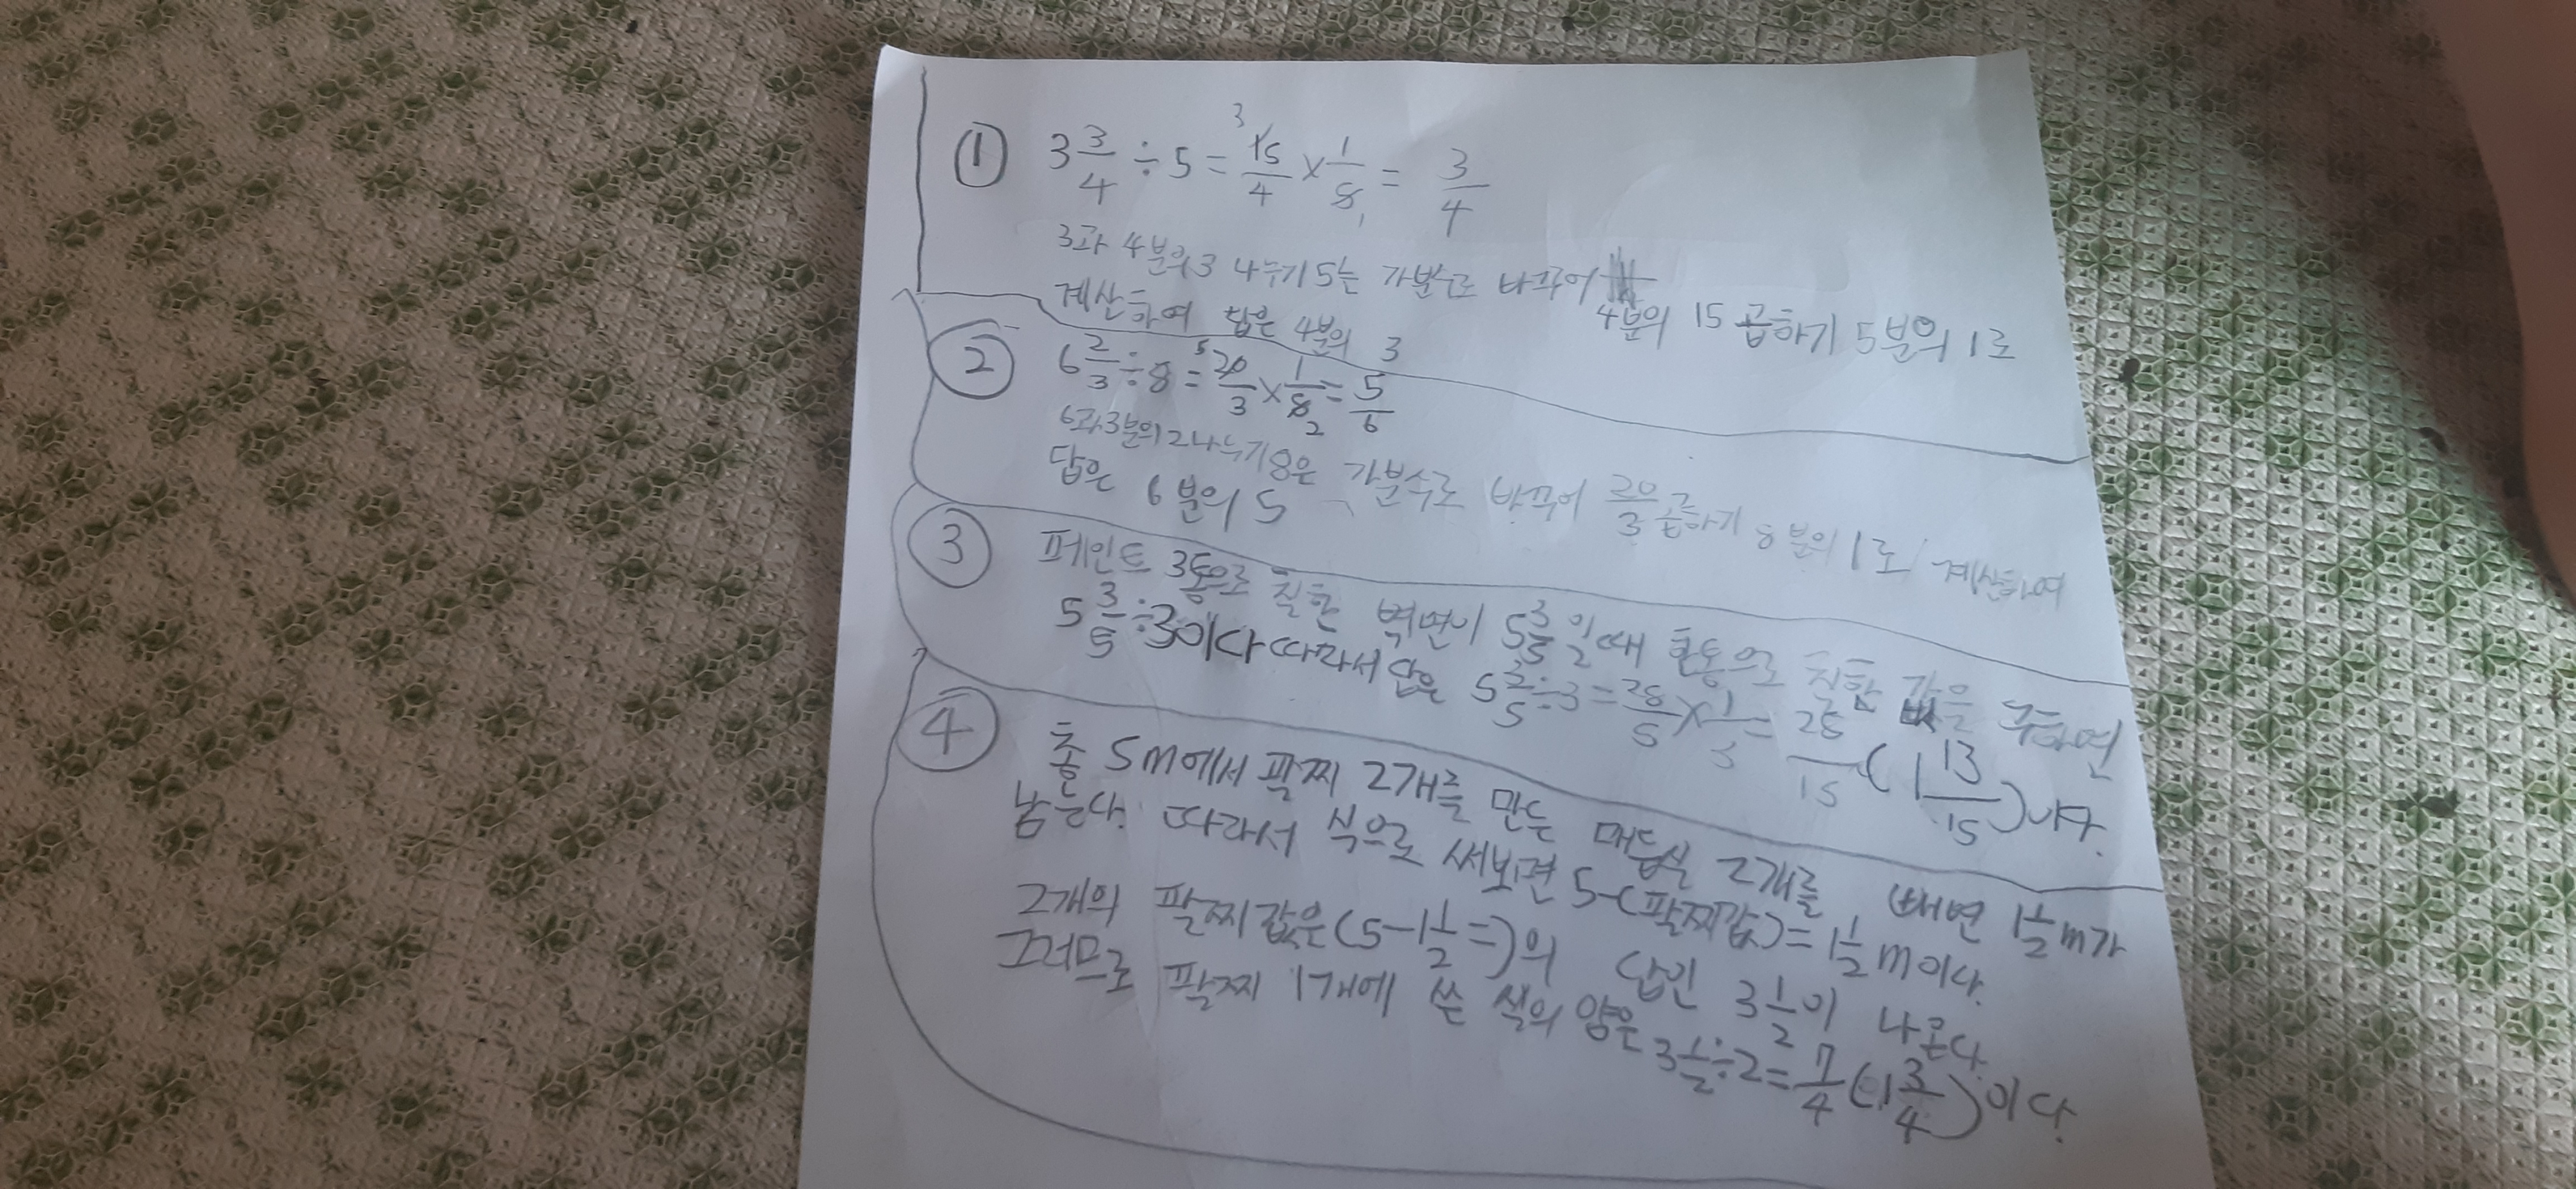 ① 3 3/4 ÷ 5 = 15/4 × 1/5 = 3/4
3과 4분의3 나누기 5는 가분수로 바꾸어 4분의 15 곱하기 5분의 1로
계산하여 답은 4분의 3
② 6 2/3 ÷ 8 = 20/3 × 1/8 = 5/6
6과3분의2나누기8은 가분수로 바꾸어 20/3 곱하기 8분의 1로 계산하여
답은 6분의 5
③ 페인트 3통으로 칠한 벽면이 5 3/5 일때 한통으로 칠한 값을 구하면
5 3/5 ÷ 3이다 따라서 답은 5 3/5 ÷ 3 = 28/5 × 1/3 = 28/15 (1 13/15)이다.
④ 총 5m에서 팔찌 2개를 만든 매듭실 2개를 빼면 1 1/2 m가
남는다. 따라서 식으로 써보면 5-(팔찌값) = 1 1/2 m이다.
2개의 팔찌값은 (5 - 1 1/2 =)의 답인 3 1/2이 나온다.
그러므로 팔찌 1개에 쓴 실의 양은 3 1/2 ÷ 2 = 7/4 (1 3/4)이다.